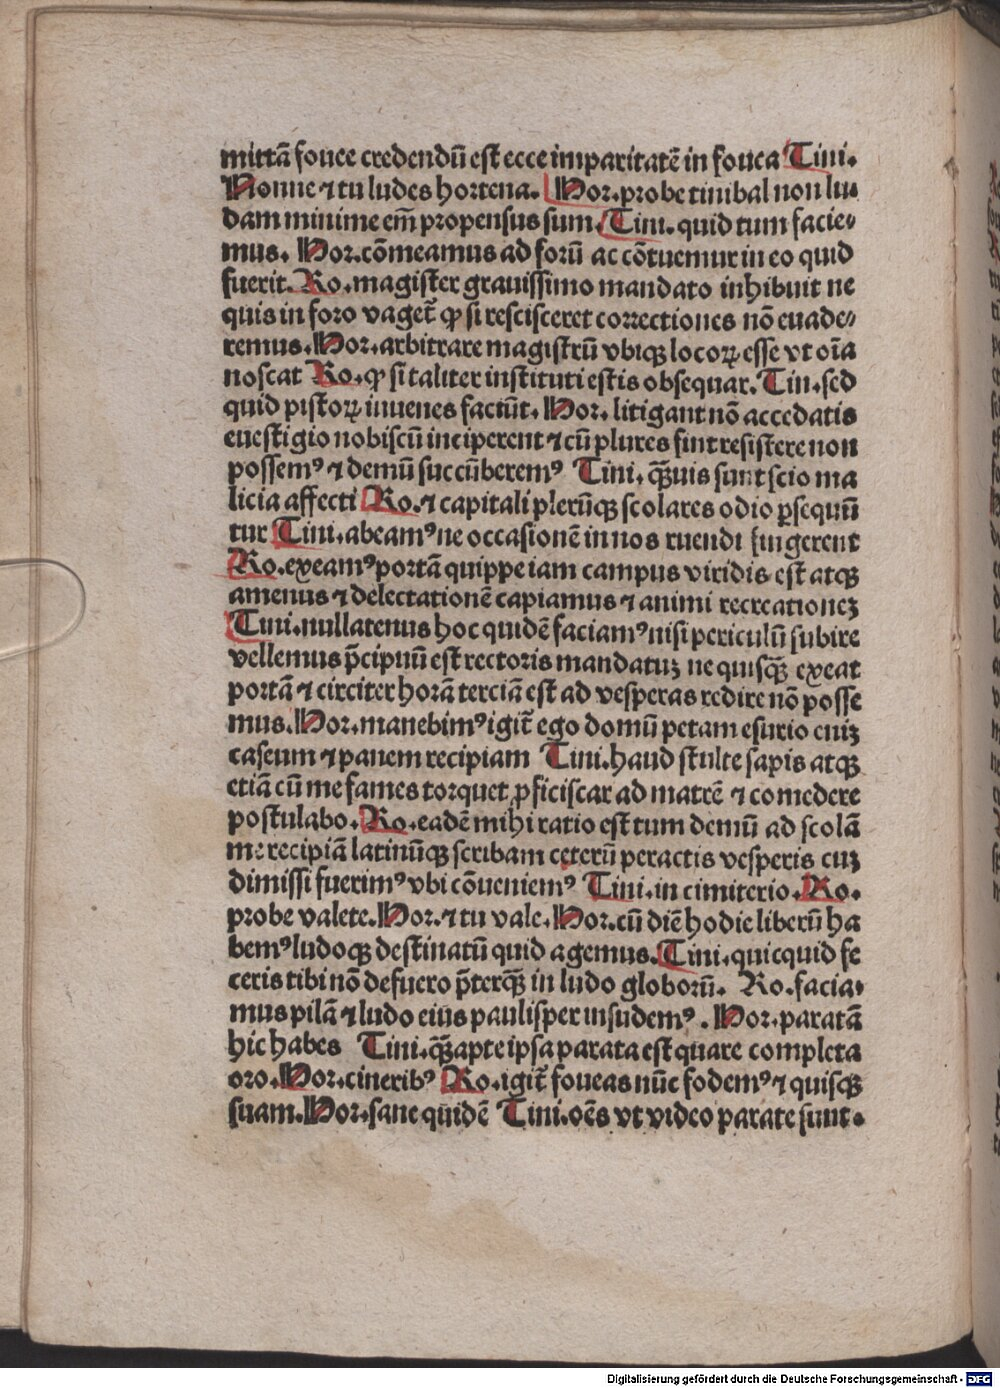 mittā fouee credendū est ecce imparitatē in fouea Tini.
Nonne ⁊ tu ludes hortena. Hor. probe tinibal non lu
dam minime em̄ propensus sum. Tini. quid tum facie⸗
mus. Hor. cōmeamus ad forū ac cōtuemur in eo quid
fuerit. Ro. magister grauissimo mandato inhibuit ne
quis in foro vaget̄ ꝙ si rescisceret correctiones nō euade⸗
remus. Hor. arbitrare magistrū vbiqꝫ locoꝝ esse vt oīa
noscat Ro. ꝙ si taliter instituti estis obsequar. Tin. sed
quid pistoꝝ iuuenes faciūt. Hor. litigant nō accedatis
euestigio nobiscū inciperent ⁊ cū plures sint resistere non
possemꝰ ⁊ demū succūberemꝰ Tini. q̄ꝫuis sunt scio ma
licia affecti Ro. ⁊ capitali plerūqꝫ scolares odio ꝑsequū
tur Tini. abeamꝰ ne occasionē in nos ruendi suggerent
Ro. exeamꝰ portā quippe iam campus viridis est atqꝫ
amenus ⁊ delectationē capiamus ⁊ animi recreationeꝫ
Tini. nullatenus hoc quidē faciamꝰ nisi periculū subire
vellemus p̄cipuū est rectoris mandatuꝫ ne quisq̄ꝫ exeat
portā ⁊ circiter horā terciā est ad vesperas redire nō posse
mus. Hor. manebimꝰ igit̄ ego domū petam esurio eniꝫ
caseum ⁊ panem recipiam Tini. haud stulte sapis atqꝫ
etiā cū me fames torquet ꝓficiscar ad matrē ⁊ comedere
postulabo. Ro. eadē mihi ratio est tum demū ad scolā
me recipiā latinūqꝫ scribam ceterū peractis vesperis cuꝫ
dimissi fuerimꝰ vbi cōueniemꝰ Tini. in cimiterio. Ro.
probe valete. Hor. ⁊ tu vale. Hor. cū diē hodie liberū ha
bemꝰ ludoqꝫ destinatū quid agemus. Tini. quicquid fe
ceris tibi nō defuero p̄terq̄ꝫ in ludo globorū. Ro. facia⸗
mus pilā ⁊ ludo eius paulisper insudemꝰ. Hor. paratā
hic habes Tini. q̄ꝫ apte ipsa parata est quare completa
oro. Hor. cineribꝰ Ro. igit̄ foueas nūc fodemꝰ ⁊ quisqꝫ
suam. Hor. sane quidē Tini. oēs vt video parate sunt.
Digitalisierung gefördert durch die Deutsche Forschungsgemeinschaft - DFG